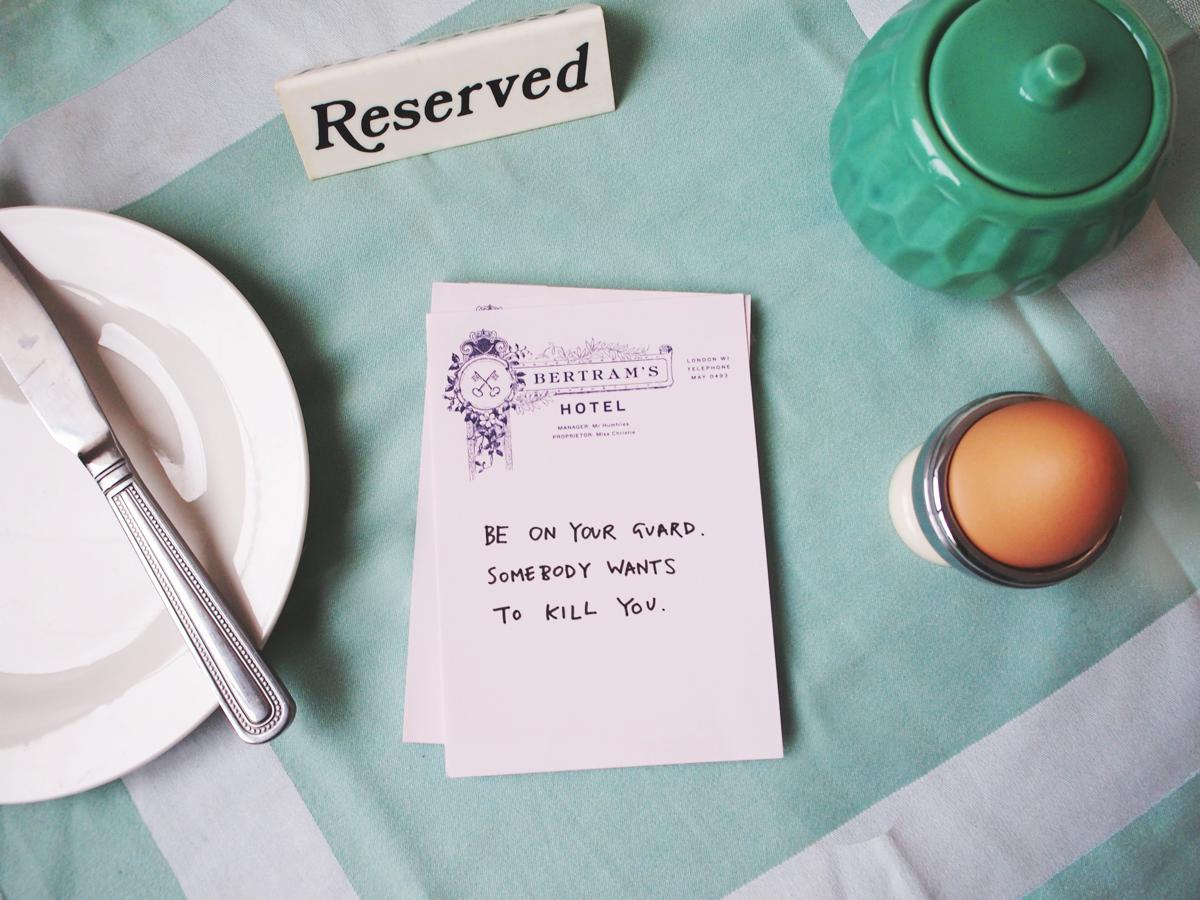 Reserved
BERTRAM'S
HOTEL
MANAGER: Mr Humfries
PROPRIETOR: Miss Christie
LONDON W1
TELEPHONE
MAY 0493
BE ON YOUR GUARD.
SOMEBODY WANTS
TO KILL YOU.